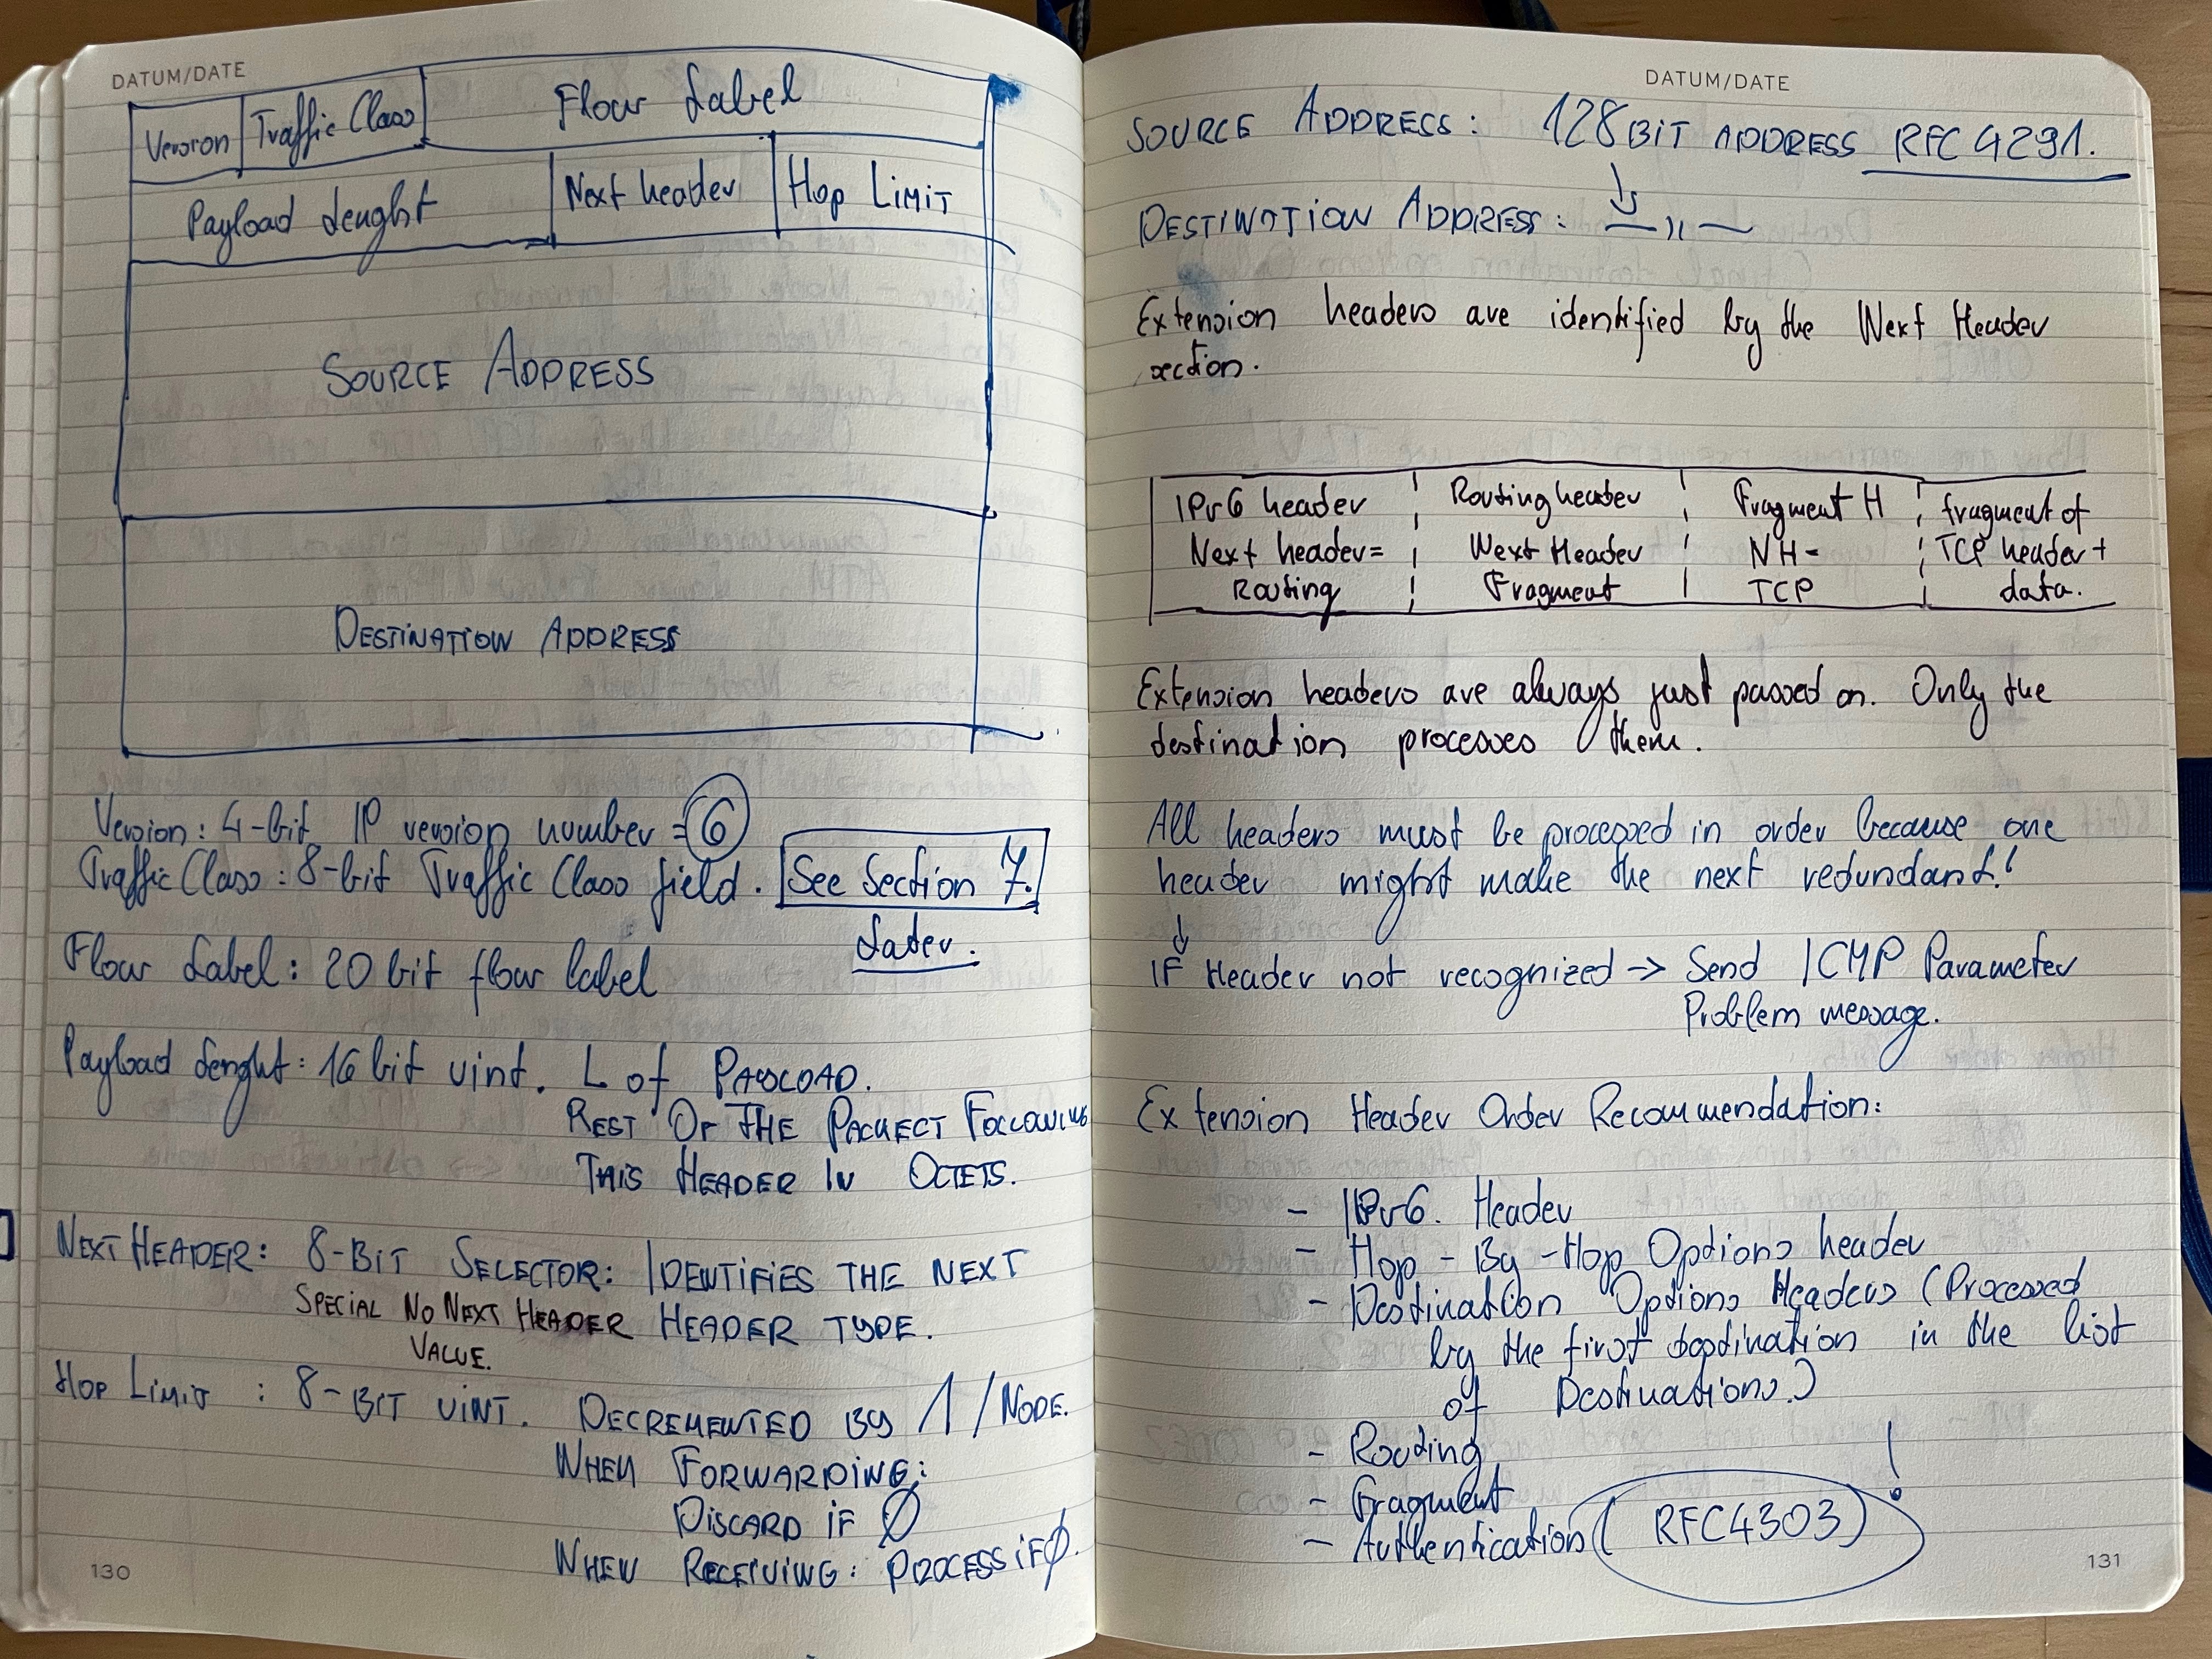 DATUM/DATE
Version Traffic Class Flow Label
Payload Lenght Next header Hop LIMIT
SOURCE ADDRESS
DESTINATION ADDRESS
Version: 4-bit IP version number = 6
Traffic Class: 8-bit Traffic Class field. See Section 7.
Later.
Flow Label: 20 bit flow label
Payload Lenght: 16 bit uint. L of PAYLOAD.
REST OF THE PACKECT FOLLOWING
THIS HEADER IN OCTETS.
NEXT HEADER: 8-BIT SELECTOR: IDENTIFIES THE NEXT
SPECIAL NO NEXT HEADER HEADER TYPE.
VALUE.
HOP LIMIT : 8-BIT UINT. DECREMENTED BY 1/NODE.
WHEN FORWARDING:
DISCARD IF Ø
WHEN RECEIVING: PROCESS IF Ø.
130
DATUM/DATE
SOURCE ADDRESS: 128 BIT ADDRESS RFC 4291.
↓
DESTINATION ADDRESS: —〃—
Extension headers are identified by the Next Header
section.
IPv6 header Routing header Fragment H fragment of
Next header= Next Header NH- TCP header +
Routing Fragment TCP data.
Extension headers are always just passed on. Only the
destination processes them.
All headers must be processed in order because one
header might make the next redundant!
↓
IF Header not recognized → Send ICMP Parameter
Problem message.
Extension Header Order Recommendation:
- IPv6. Header
- Hop-By-Hop Options header
- Destination Options Headers (Processed
by the first destination in the list
of Destinations.)
- Routing
- Fragment
- Authentication (RFC4303) !
131